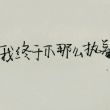 我终于不那么执着